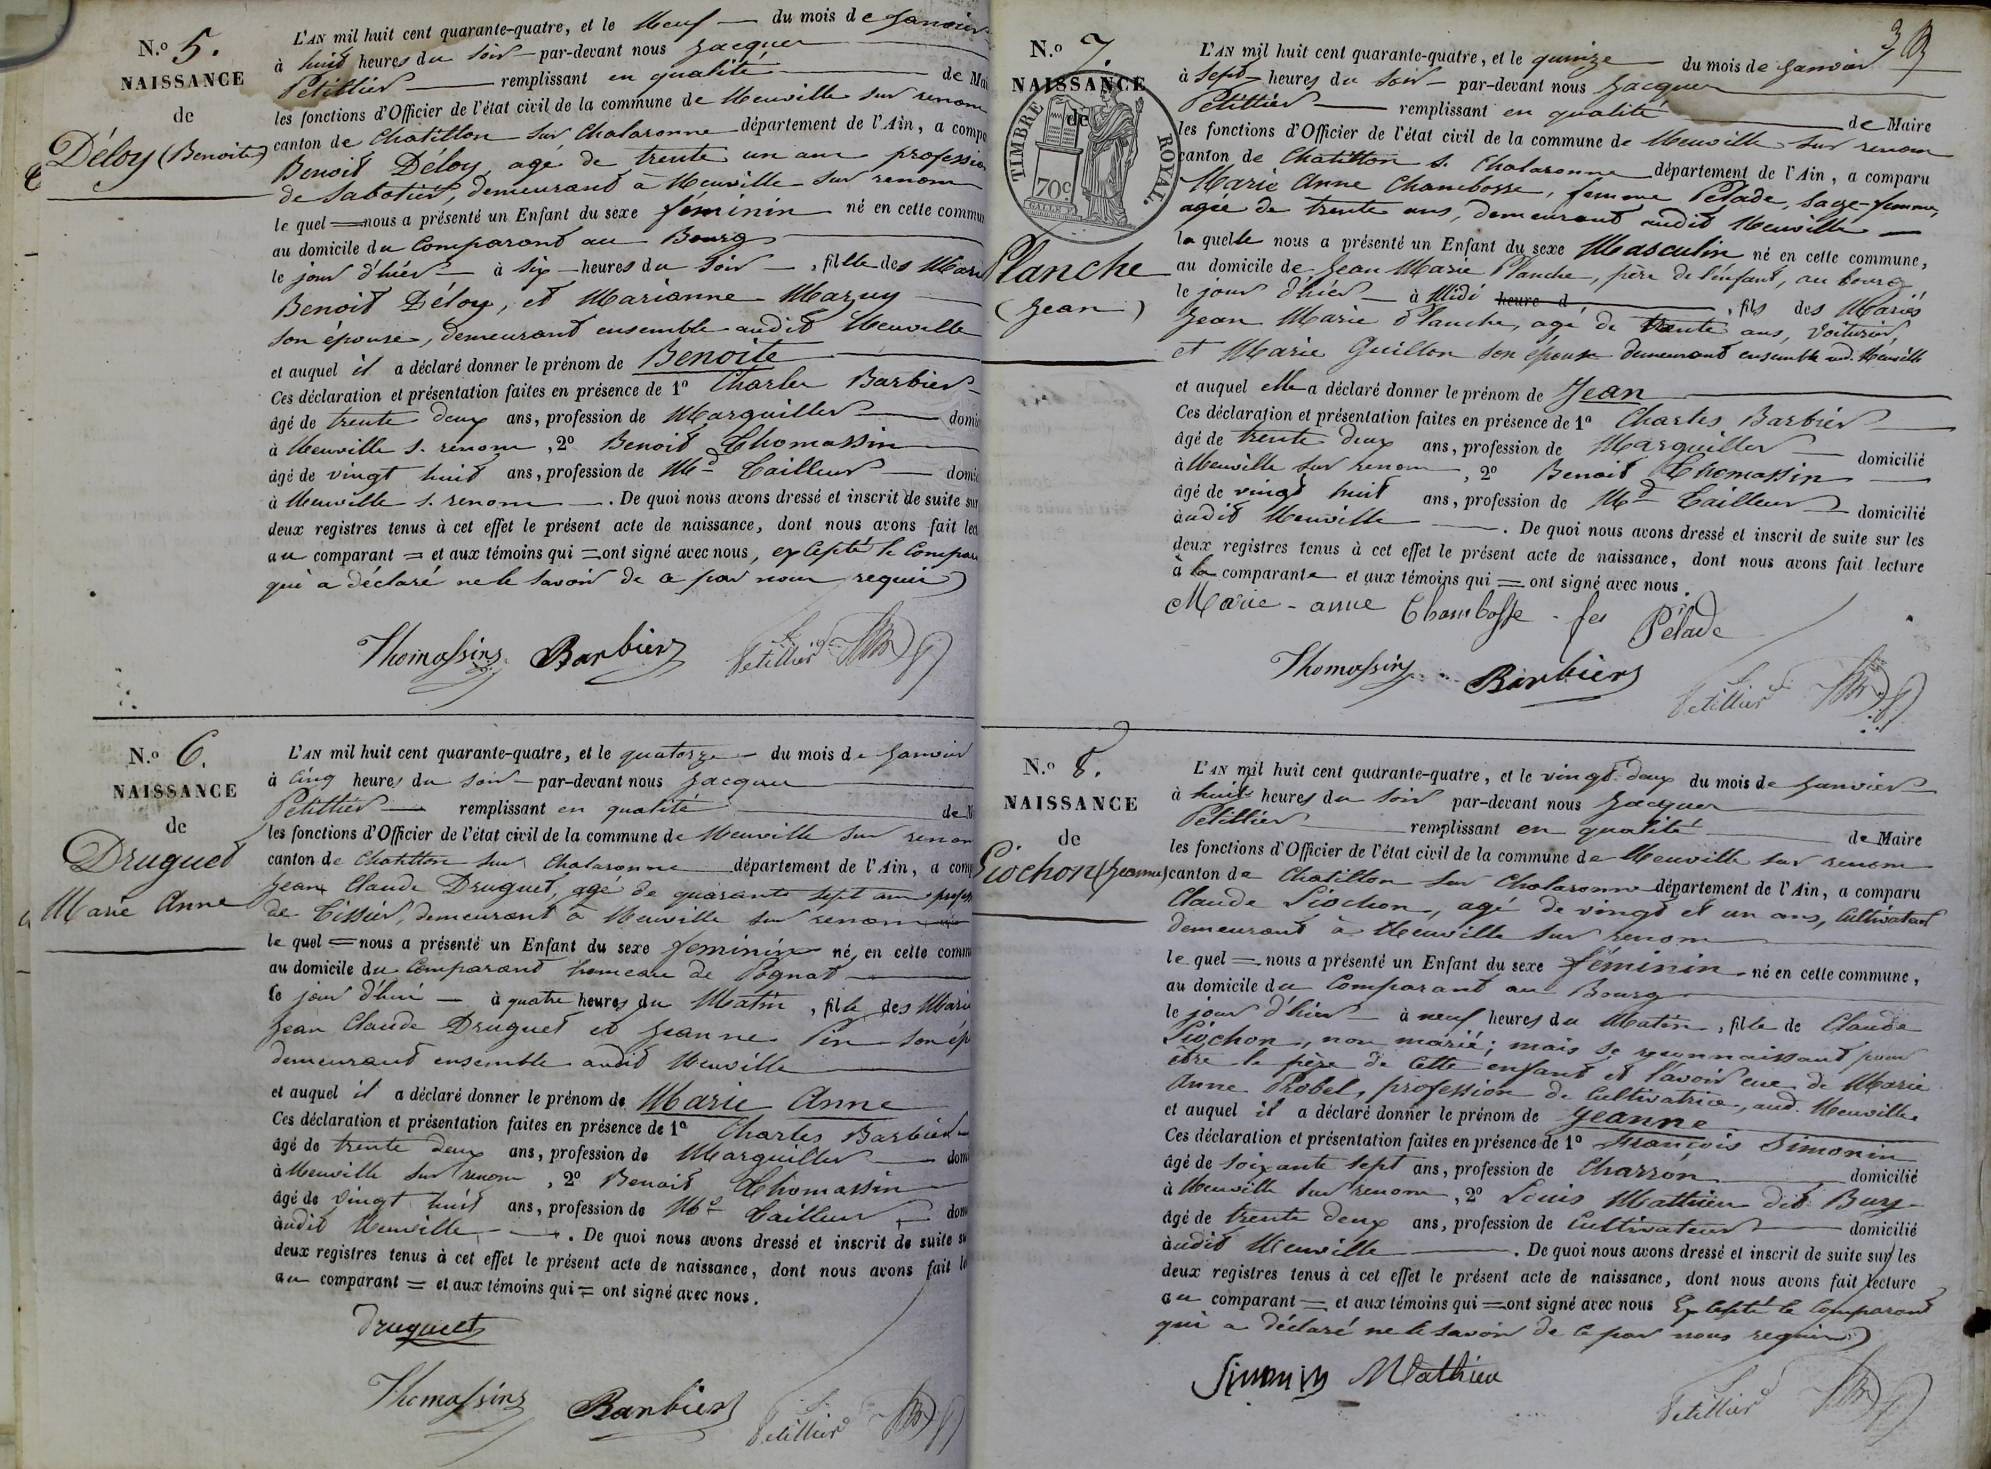 N.o 5.
NAISSANCE
de
Déloy (Benoite)
L'AN mil huit cent quarante-quatre, et le Neuf du mois de Janvier
à huit heures du soir par-devant nous Jacques
Petillier remplissant en qualité de Mai
les fonctions d'Officier de l'état civil de la commune de Neuville sur renom
canton de Chatillon sur Chalaronne département de l'Ain, a compa
Benoit Déloy, agé de trente un ans profession
de Sabotier, demeurant à Neuville sur renom
le quel nous a présenté un Enfant du sexe féminin né en cette commu
au domicile du Comparant au Bourg
le jour d'hier à six heures du soir, fille des Marié
Benoit Déloy, et Marianne Mazuy
son épouse, demeurant ensemble audit Neuville
et auquel il a déclaré donner le prénom de Benoite
Ces déclaration et présentation faites en présence de 1o Charles Barbier
âgé de trente deux ans, profession de Marguiller domic
à Neuville s. renom, 2o Benoit Thomassin
âgé de vingt huit ans, profession de Md Tailleur domic
à Neuville s. renom. De quoi nous avons dressé et inscrit de suite sur
deux registres tenus à cet effet le présent acte de naissance, dont nous avons fait lec
au comparant et aux témoins qui ont signé avec nous, excepté le Compar
qui a déclaré ne le savoir de ce par nous requis)
Thomassin Barbier Petillier
N.o 6.
NAISSANCE
de
Druguet
Marie Anne
L'AN mil huit cent quarante-quatre, et le quatorze du mois de Janvier
à cinq heures du soir par-devant nous Jacques
Petillier remplissant en qualité de M
les fonctions d'Officier de l'état civil de la commune de Neuville sur renom
canton de Chatillon sur Chalaronne département de l'Ain, a comp
Jean Claude Druguet, agé de quarante sept ans profess
de Tissier, demeurant à Neuville sur renom
le quel nous a présenté un Enfant du sexe féminin né en cette commu
au domicile du Comparant hameau de Pognat
le jour d'hui à quatre heures du Matin, fille des Marié
Jean Claude Druguet et Jeanne Pin son ép
demeurant ensemble audit Neuville
et auquel il a déclaré donner le prénom de Marie Anne
Ces déclaration et présentation faites en présence de 1o Charles Barbier
âgé de trente deux ans, profession de Marguiller dom
à Neuville sur renom, 2o Benoit Thomassin
âgé de vingt huit ans, profession de Md Tailleur dom
audit Neuville. De quoi nous avons dressé et inscrit de suite su
deux registres tenus à cet effet le présent acte de naissance, dont nous avons fait le
au comparant et aux témoins qui ont signé avec nous.
Druguet
Thomassin Barbier Petillier
N.o 7.
NAISSANCE
de
TIMBRE ROYAL.
70c
Planche
(Jean)
3
L'AN mil huit cent quarante-quatre, et le quinze du mois de Janvier
à sept heures du soir par-devant nous Jacques
Petillier remplissant en qualité de Maire
les fonctions d'Officier de l'état civil de la commune de Neuville sur renom
canton de Chatillon s. Chalaronne département de l'Ain, a comparu
Marie Anne Chambosse, femme Pelade, sage-femme,
agée de trente ans, demeurant audit Neuville
la quelle nous a présenté un Enfant du sexe Masculin né en cette commune,
au domicile de Jean Marie Planche, père de l'enfant, au bourg
le jour d'hier à Midi heure d, fils des Mariés
Jean Marie Planche, agé de trente ans, Voiturier,
et Marie Guillon son épouse demeurant ensemble aud. Neuville
et auquel elle a déclaré donner le prénom de Jean
Ces déclaration et présentation faites en présence de 1o Charles Barbier
âgé de trente deux ans, profession de Marguiller domicilié
à Neuville sur renom, 2o Benoit Thomassin
âgé de vingt huit ans, profession de Md Tailleur domicilié
audit Neuville. De quoi nous avons dressé et inscrit de suite sur les
deux registres tenus à cet effet le présent acte de naissance, dont nous avons fait lecture
à la comparante et aux témoins qui ont signé avec nous.
Marie-anne Chambosse fe Pélade
Thomassin Barbier Petillier
N.o 8.
NAISSANCE
de
Liochon (Jeanne)
L'AN mil huit cent quarante-quatre, et le vingt-deux du mois de Janvier
à huit heures du soir par-devant nous Jacques
Petillier remplissant en qualité de Maire
les fonctions d'Officier de l'état civil de la commune de Neuville sur renom
canton de Chatillon sur Chalaronne département de l'Ain, a comparu
Claude Liochon, agé de vingt et un ans, Cultivateur
demeurant à Neuville sur renom
le quel nous a présenté un Enfant du sexe féminin né en cette commune,
au domicile du Comparant au Bourg
le jour d'hier à neuf heures du Matin, fille de Claude
Liochon, non marié; mais se reconnaissant pour
être le père de cette enfant et l'avoir eue de Marie
Anne Probel, profession de Cultivatrice, aud. Neuville
et auquel il a déclaré donner le prénom de Jeanne
Ces déclaration et présentation faites en présence de 1o François Simonin
âgé de soixante sept ans, profession de Charron domicilié
à Neuville sur renom, 2o Louis Mathieu dit Bury
âgé de trente deux ans, profession de Cultivateur domicilié
audit Neuville. De quoi nous avons dressé et inscrit de suite sur les
deux registres tenus à cet effet le présent acte de naissance, dont nous avons fait lecture
au comparant et aux témoins qui ont signé avec nous Excepté le Comparant
qui a déclaré ne le savoir de ce par nous requis)
Simonin Mathieu
Petillier